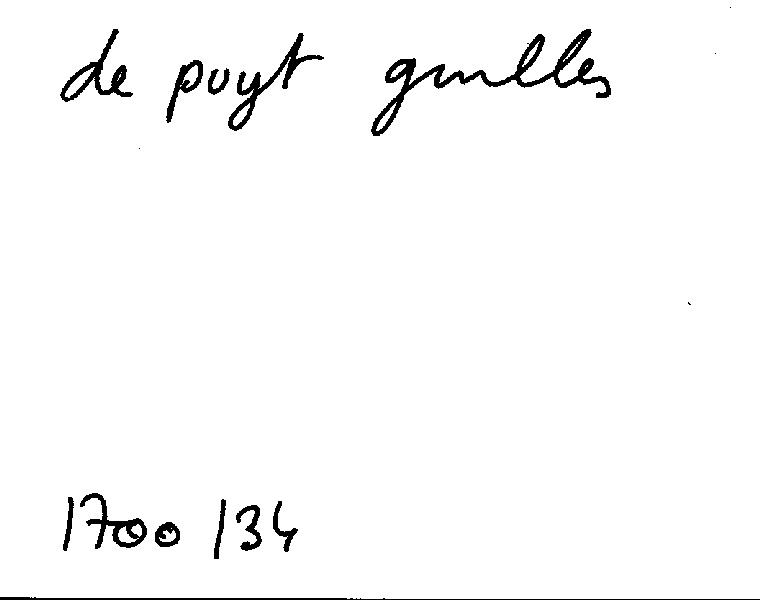 de puyt guilles
1700 134